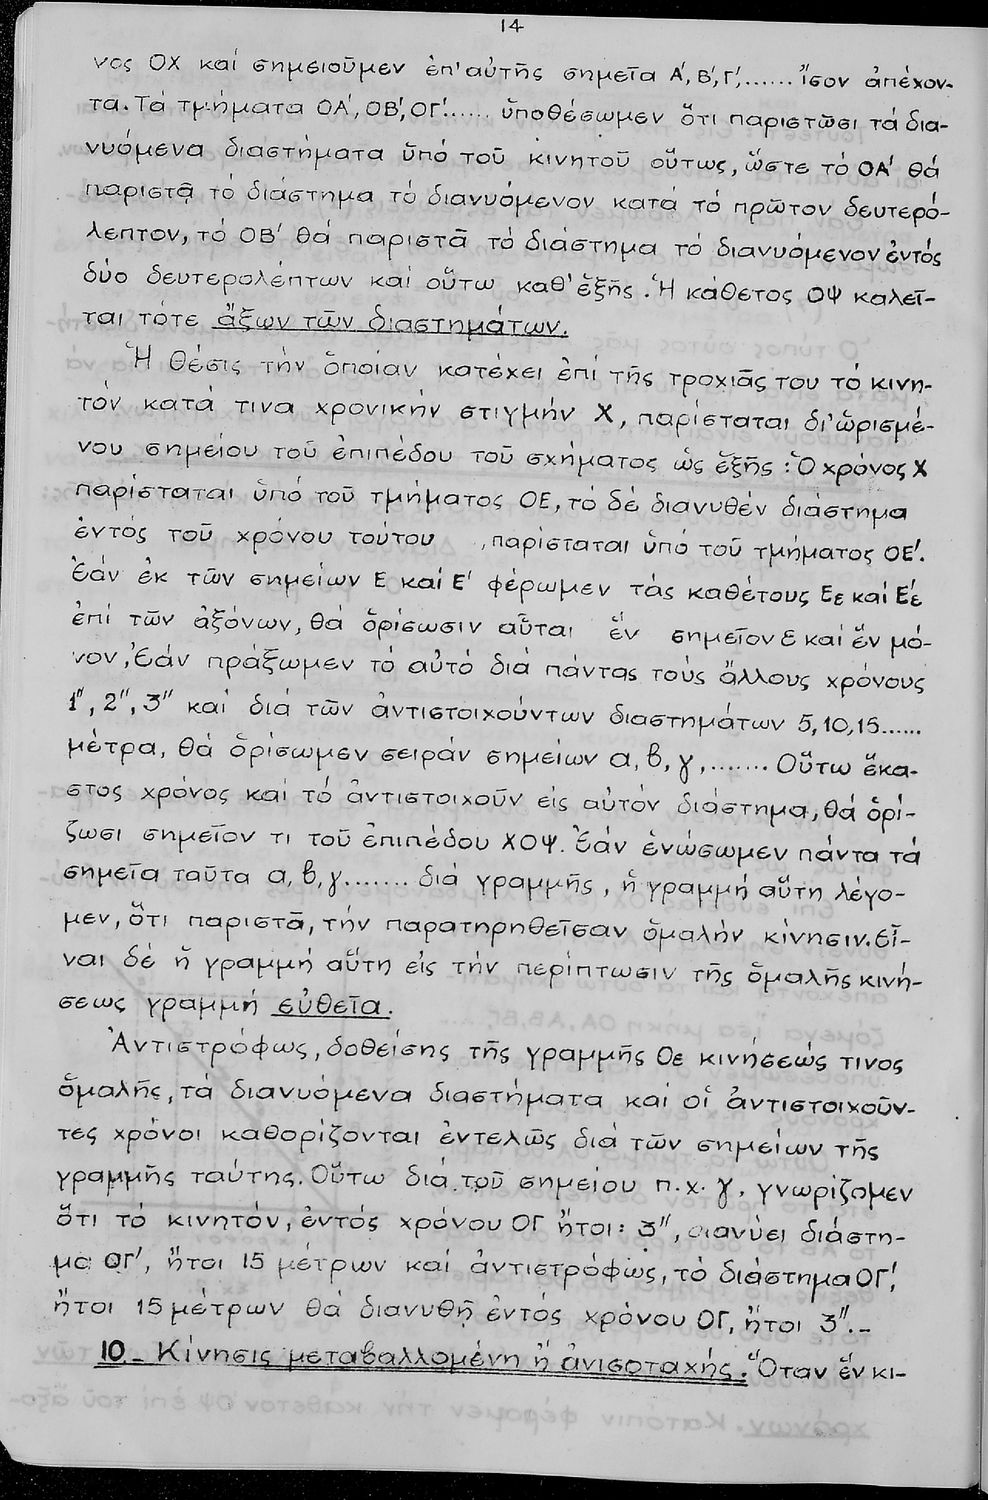 14
νος ΟΧ καί σημειοῦμεν ἐπ' αὐτῆς σημεῖα Α', Β', Γ', ...... ἴσον ἀπέχον-
τα. Τά τμήματα ΟΑ', ΟΒ', ΟΓ' ...... ὑποθέσωμεν ὅτι παριστῶσι τά δια-
νυόμενα διαστήματα ὑπό τοῦ κινητοῦ οὕτως, ὥστε τό ΟΑ' θά
παριστᾷ τό διάστημα τό διανυόμενον κατά τό πρῶτον δευτερό-
λεπτον, τό ΟΒ' θά παριστᾶ τό διάστημα τό διανυόμενον ἐντός
δύο δευτερολέπτων καί οὕτω καθ' ἑξῆς. Ἡ κάθετος ΟΨ καλεῖ-
ται τότε ἄξων τῶν διαστημάτων.
Ἡ θέσις τήν ὁποίαν κατέχει ἐπί τῆς τροχιᾶς του τό κινη-
τόν κατά τινα χρονικήν στιγμήν Χ, παρίσταται δι' ὡρισμέ-
νου σημείου τοῦ ἐπιπέδου τοῦ σχήματος ὡς ἑξῆς: Ὁ χρόνος Χ
παρίσταται ὑπό τοῦ τμήματος ΟΕ, τό δέ διανυθέν διάστημα
ἐντός τοῦ χρόνου τούτου , παρίσταται ὑπό τοῦ τμήματος ΟΕ'.
Ἐάν ἐκ τῶν σημείων Ε καί Ε' φέρωμεν τάς καθέτους Εε καί Ε'ε
ἐπί τῶν ἀξόνων, θά ὁρίσωσιν αὗται ἕν σημεῖον ε καί ἕν μό-
νον, Ἐάν πράξωμεν τό αὐτό διά πάντας τούς ἄλλους χρόνους
1", 2", 3" καί διά τῶν ἀντιστοιχούντων διαστημάτων 5, 10, 15 ......
μέτρα, θά ὁρίσωμεν σειράν σημείων α, β, γ, ....... Οὕτω ἕκα-
στος χρόνος καί τό ἀντιστοιχοῦν εἰς αὐτόν διάστημα, θά ὁρί-
ζωσι σημεῖον τι τοῦ ἐπιπέδου ΧΟΨ. Ἐάν ἑνώσωμεν πάντα τά
σημεῖα ταῦτα α, β, γ ....... διά γραμμῆς, ἡ γραμμή αὕτη λέγο-
μεν, ὅτι παριστᾶ, τήν παρατηρηθεῖσαν ὁμαλήν κίνησιν. Εἶ-
ναι δέ ἡ γραμμή αὕτη εἰς τήν περίπτωσιν τῆς ὁμαλῆς κινή-
σεως γραμμή εὐθεῖα.
Ἀντιστρόφως, δοθείσης τῆς γραμμῆς Οε κινήσεώς τινος
ὁμαλῆς, τά διανυόμενα διαστήματα καί οἱ ἀντιστοιχοῦν-
τες χρόνοι καθορίζονται ἐντελῶς διά τῶν σημείων τῆς
γραμμῆς ταύτης. Οὕτω διά τοῦ σημείου π.χ. γ, γνωρίζομεν
ὅτι τό κινητόν, ἐντός χρόνου ΟΓ ἤτοι: 3", διανύει διάστη-
μα ΟΓ', ἤτοι 15 μέτρων καί ἀντιστρόφως, τό διάστημα ΟΓ',
ἤτοι 15 μέτρων θά διανυθῇ ἐντός χρόνου ΟΓ, ἤτοι 3".-
10_ Κίνησις μεταβαλλομένη ἤ ἀνισοταχής. Ὅταν ἕν κι-